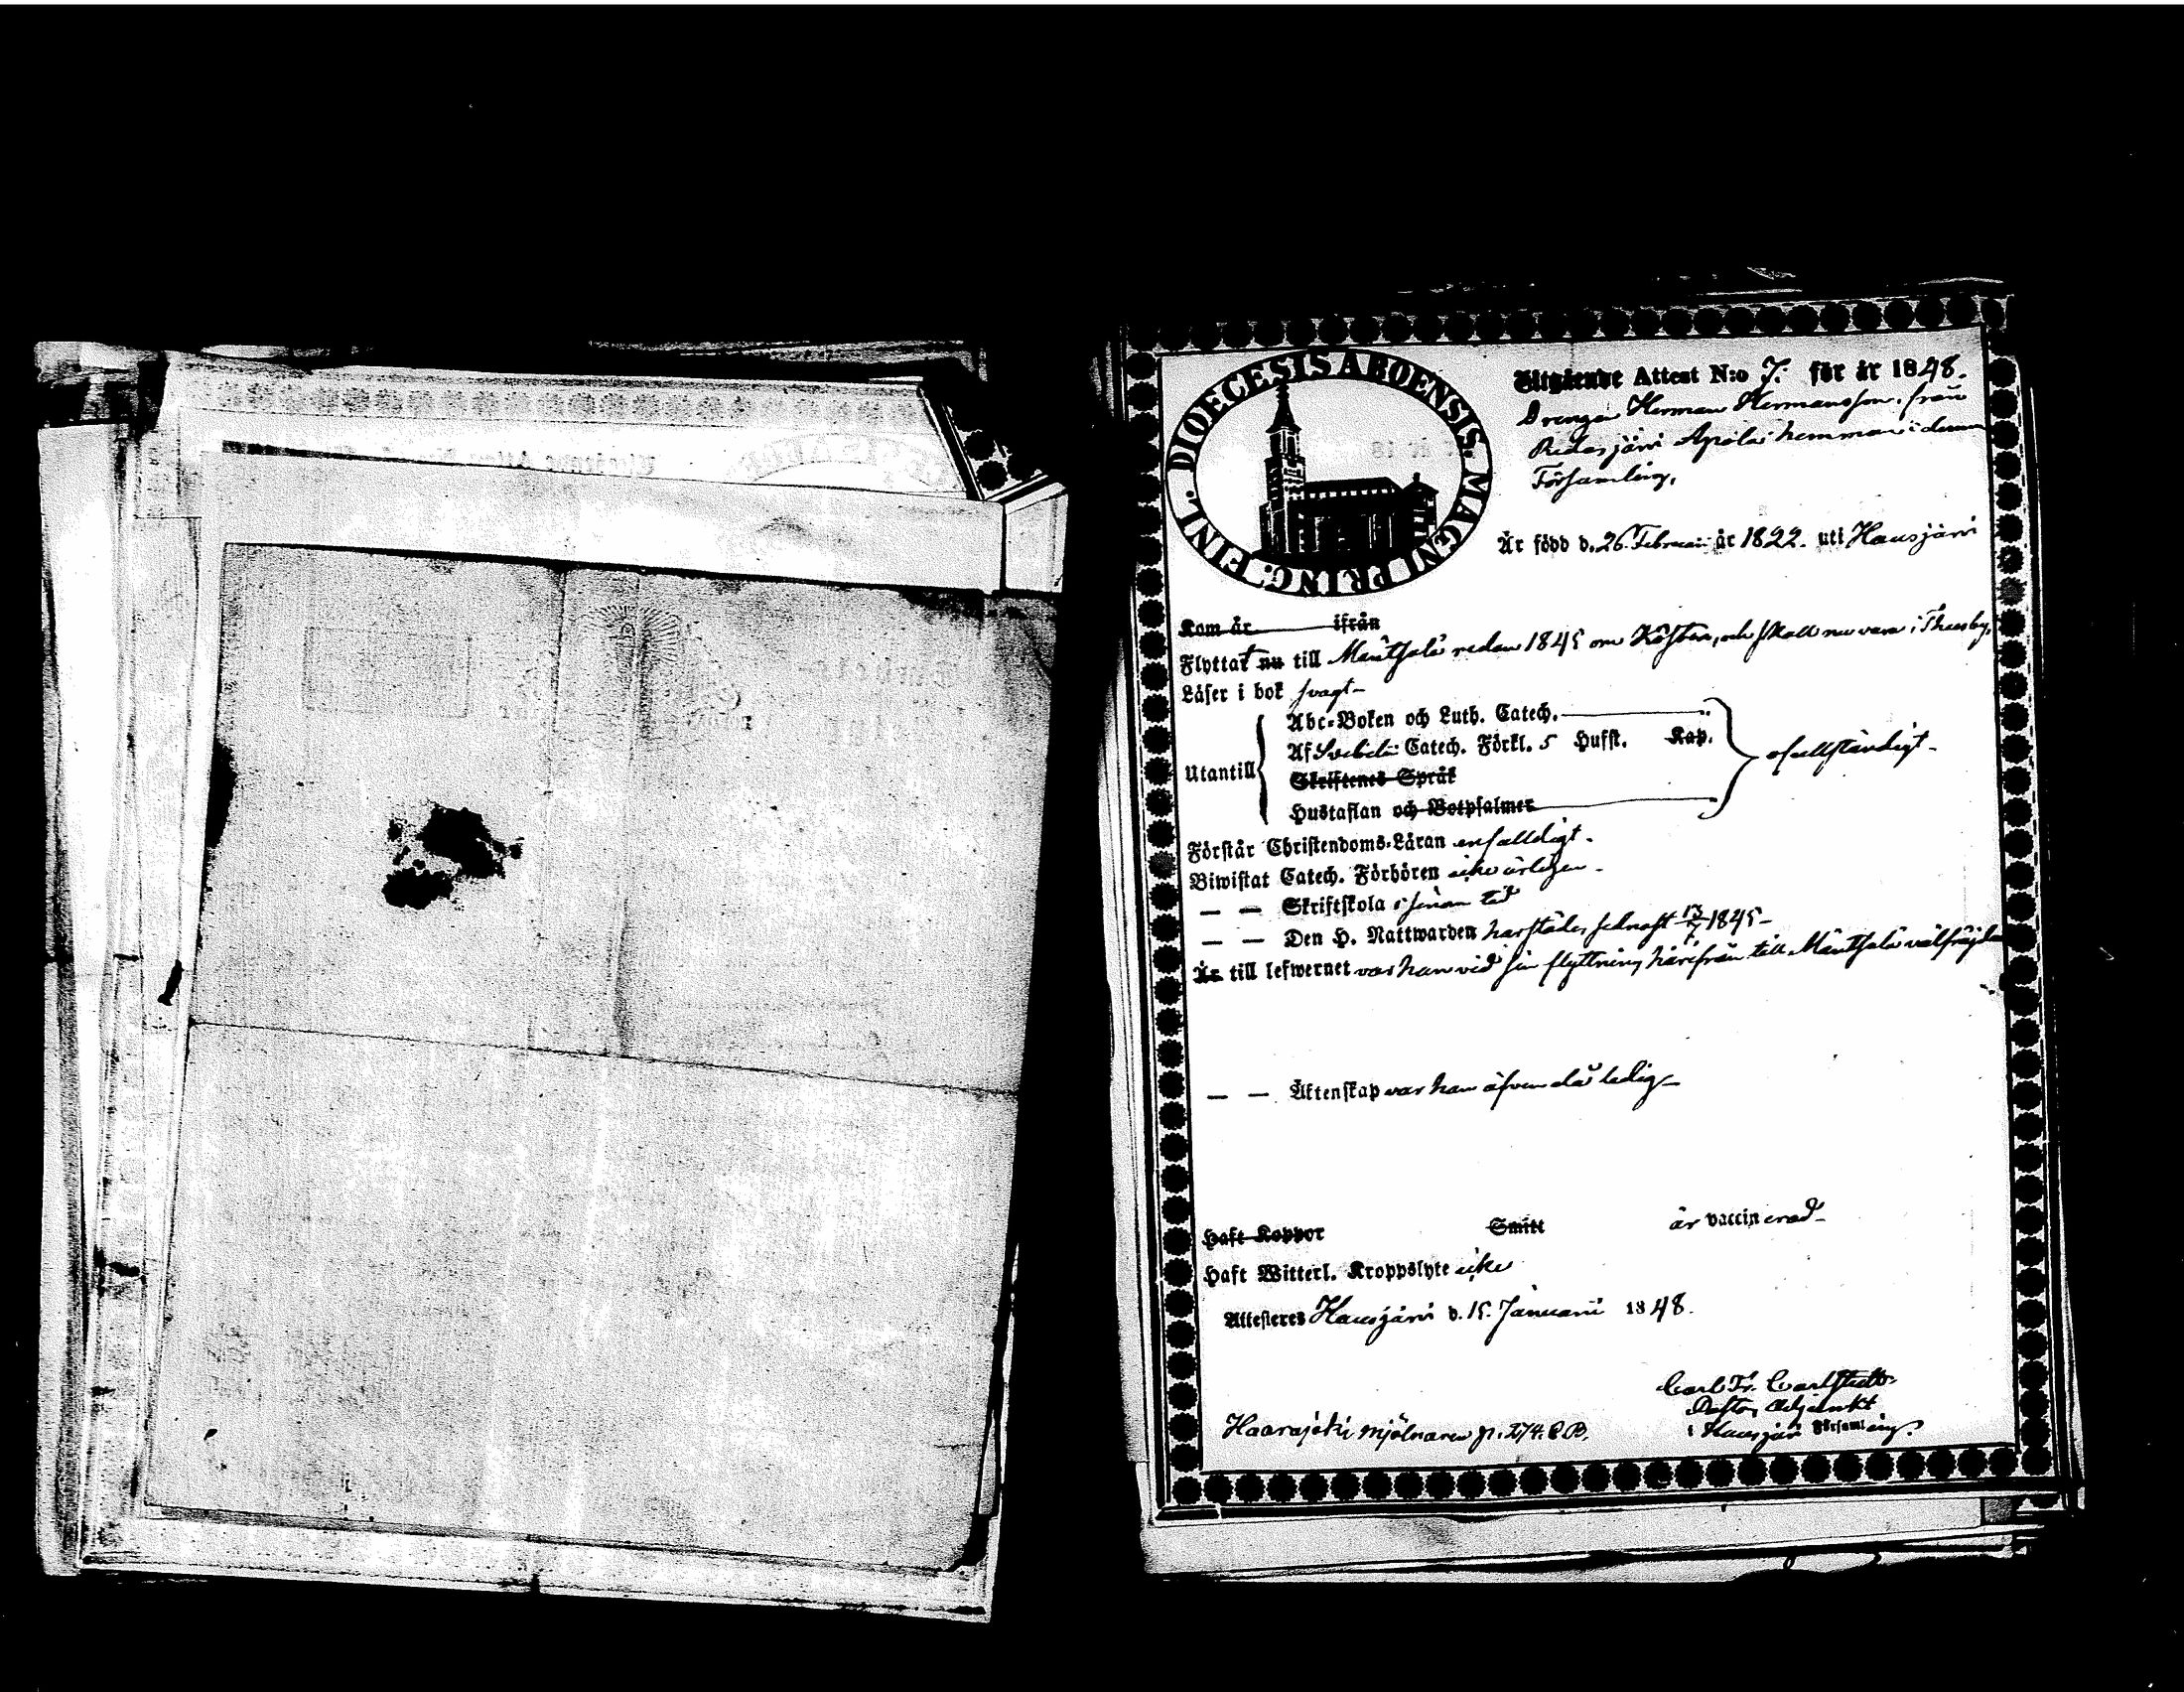 DIOECESIS ABOENSIS. MAGNI PRINC. FINL.
Utgående Attest N:o 7. för år 1848.
Drengen Herman Hermansson, från
Ridasjärvi Apola hemman i denna
Församling,
Är född d. 26. Februari år 1822. uti Hausjärvi
Kom år ifrån
Flyttat nu till Mäntsälä redan 1845 om Hösten, och skall nu vara i Thusby,
Läser i bok svagt
Abc-Boken och Luth. Catech.
Af Svebelii Catech. Förkl. 5 Hufst. Kap.
Utantill
ofullständigt
Skriftenes Språk
Hustaflan och Botpsalmer
Förstår Christendoms-Läran enfalldigt.
Biwistat Catech. Förhören icke årligen
— — Skriftskola i sinom tid
— — Den H. Nattwarden härstädes sednast 13/7 1845
Är till lefwernet var han vid sin flyttning härifrån till Mäntsälä välfräjdad
— — Äktenskap var han äfven då ledig
Haft Koppor Smitt är vaccinerad
Haft Witterl. Kroppslyte icke
Attesteres Hausjärvi d. 15. Januari 1848.
Carl Fr. Carlstedt
Pastors Adjunkt
i Hausjärvi Församling.
Haarajoki mjölnaren p. 274.